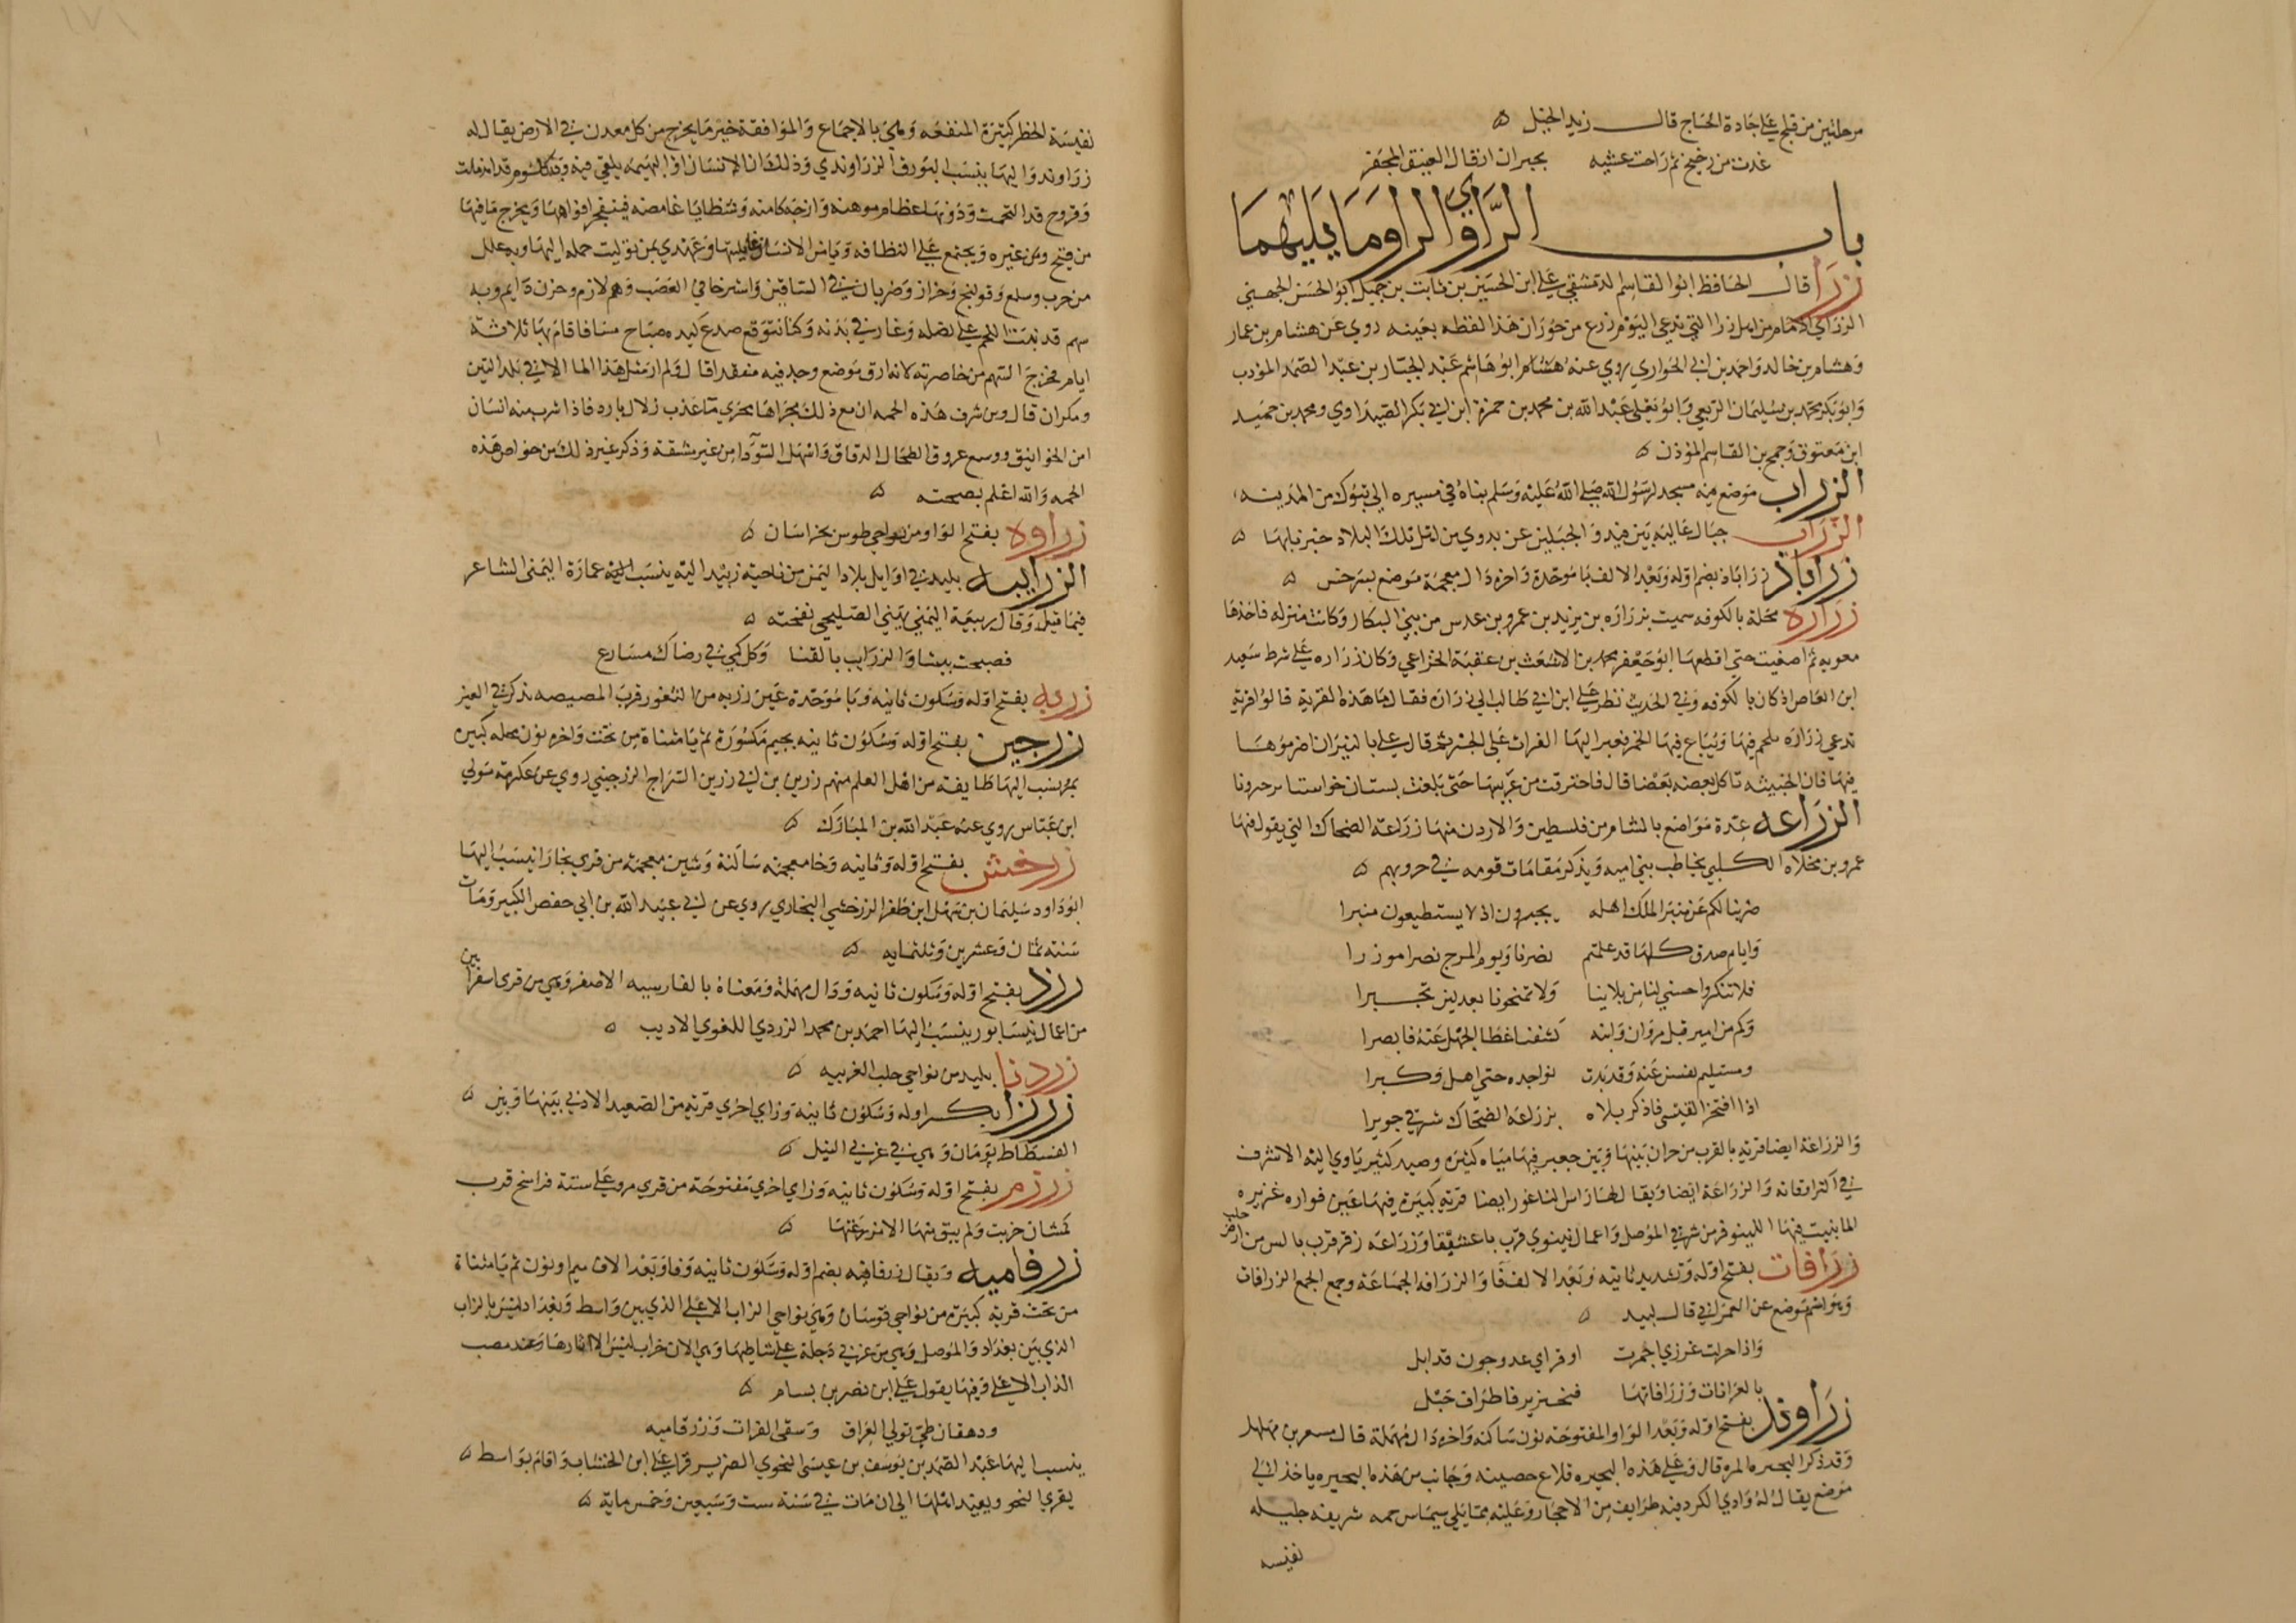 مرحلتين من فلج على جادة الحاج قال زيد الخيل ه
غدت من زخيخ ثم راحت عشية بحبران ارقال العنيق المجفر
باب الزاي والراوما يليهما
زرا قال الحافظ ابوا القاسم الدمشقي علي ابن الحسين بن ثابت بن جميل ابو الحسن الجهني
الزراي الامام من اهل زرا التي تدعي اليوم زرع من حوران هذا لفظه بعينه روي عن هشام بن عمار
وهشام بن خالد واحمد بن ابي الحواري روي عنه ابو هاشم عبد الجبار بن عبد الصمد المؤدب
وابو بكر محمد بن سليمان الربعي وابو يعلي عبد الله بن محمد بن حمزة ابن ابي بكر الصيداوي ومحمد بن حميد
ابن معتوق وجمح بن القاسم المؤذن ه
الزراب موضع فيه مسجد لرسول الله صلي الله عليه وسلم بناه في مسيره الي تبوك من المدينه
الزراب جبال عاليه بين فيد والجبلين عن بدوي من اهل تلك البلاد خبر نابها ه
زراباذ زراباذ بضم اوله وبعد الالف با موحدة واخره ذال معجمة موضع بسرخس ه
زراره محلة بالكوفه سميت بزراره بن يزيد بن عمرو بن عدس من بني البكار وكانت منزله فاخذها
معويه ثم اصفيت حتي اقطعها ابو جعفر محمد بن الاشعث بن عقبة الخزاعي وكان زراره علي شرط سعيد
ابن العاص اذ كان بالكوفه وفي الحديث نظر علي ابن ابي طالب الي زرارة فقال ما هذه القرية قالوا قرية
تدعي زرارة يلحم فيها ويباع فيها الخمر فعبر اليها الفرات علي الجسر ثم قال علي بالنيران اضرموها
فيها فان الخبيثه تاكل بعضه بعضا قال فاحترقت من غربيها حتي بلغت بستان خواستا
الزراعه عدة مواضع بالشام من فلسطين والاردن منها زراعة الضحاك التي يقول فيها
عمرو بن مخلاه الكلبي يخاطب بني اميه ويذكر مقامات قومه في حروبهم ه
ضربنا لكم عن منبر الملك اهله بجيرون اذ لا يستطيعون منبرا
وايام صدق كلها قد علمتم نصرنا ويوم المرج نصرا موزرا
فلا تنكروا حسني لنا من بلاينا ولا تمنحونا بعد لين تجبرا
وكم من امير قبل مروان وابنه كشفنا غطا الجهل عنه فابصرا
ومستسلم نفسن عنه وقد بدت نواجده حتي اهل وكبرا
اذا افتخر القيسي فاذكر بلاه بزراعه الضحاك شرقي جويرا
والزراعة ايضا قرية بالقرب من حران بينها وبين جعبر فيها مياه كثيرة وصيد كثير ياوي اليه الاشرف
في اكثر اوقاته والزراعة ايضا ويقال لها راس الناعور ايضا قرية كبيرة فيها عين فواره غزيره
الما ينبت فيها اللينوفر من شرقي الموصل واعمال نينوي قرب باعشيقا وزراعه زفر قرب بالس من ارض حلب
زرافات بفتح اوله وتشديد ثانيه وبعد الالف فا والزرافه الجماعة وجمع الجمع الزرافات
وهو اسم موضع عن العمراني قال لبيد ه
واذا حركت غرزي اجمرت او قرابي عدو جون قد ابل
بالغرابات وزرافاتها فبخنزير فاطراف حبل
زراوند بفتح اوله وبعد الواو المفتوحة نون ساكنه واخره دال مهملة قال مسعر بن مهلهل
وقد ذكر البحيره المره قال وعلي هذه البحيره قلاع حصينه وجانب من هذه البحيره ياخذ الي
موضع يقال له وادي الكرد فيه طرايف من الاحجار وعليه مما يلي سيماس حمه شريفه جليله
نفيسه
نفيسة الخطر كثيرة المنفعه وهي بالاجماع والموافقة خير ما يخرج من كل معدن في الارض يقال له
زراوند واليها ينسب البورق الزراوندي وذلك ان الانسان او البهيمه يلقي فيه وبه كلوم قد اندملت
وقروح قد التحمت ودونها عظام موهنه وازجه كامنه وشظايا غامضه فينفجر افواهها ويخرج ما فيها
من قيح ومن غيره ويجتمع علي النظافه ويامن الانسان غايلتها وعهدي بمن توليت حمله اليها وبه علل
من جرب وسلع وقولنج وحزاز وضربان في الساقين واسترخا في العصب وهم لازم وحزن دايم وبه
سهم قد نبت اللحم علي نصله وغار في بدنه وكنا نتوقع صدع كبده صباح مسا فاقام بها ثلاثة
ايام فخرج السهم من خاصرته لانه ارق موضع وجد فيه منفعدا قال ولم ار مثل هذا الما الا في بلد التين
ومكران قال ومن شرف هذه الحمه ان مع ذلك مجراها مجري ما عذب زلال بارد فاذا شرب منه انسان
امن الخوانيق ووسع عروق الطحال الدقاق واسهل السودا من غير مشقة وذكر غير ذلك من خواص هذه
الحمه والله اعلم بصحته ه
زراوه بفتح الواو من نواحي طوس بخراسان ه
الزرايبه بليد في اوايل بلاد اليمن من ناحية زبيد اليه ينسب عمارة اليمني الشاعر
فيما قيل وقال ربيعة اليمني يهني الصليحي بفتحه ه
فصبحت بيشا والزرايب بالقنا وكل كمي في رضاك مسارع
زربه بفتح اوله وسكون ثانيه وبا موحدة عين زربه من الثغور قرب المصيصه تذكر في العين
زرجين بفتح اوله وسكون ثانيه بجيم مكسورة ثم يا مثناة من تحت واخره نون محله كبيره
بمرو ينسب اليها طايفة من اهل العلم منهم زرين بن ابي زرين السراج الزرجيني روي عن عكرمة مولي
ابن عباس روي عنه عبد الله بن المبارك ه
زرخش بفتح اوله وثانيه وخا معجمه ساكنة وشين معجمة من قري بخارا ينسب اليها
ابو داود سليمان بن سهل ابن ظفر الزرخشي البخاري روي عن ابي عبيد الله بن ابي حفص الكبير ومات
سنه ثمان وعشرين وثلثمايه ه
زرد بفتح اوله وسكون ثانيه ودال مهملة ومعناه بالفارسيه الاصفر وهي من قري اسفراين
من اعمال نيسابور ينسب اليها احمد بن محمد الزردي اللغوي الاديب ه
زردنا بليد من نواحي حلب الغربيه ه
زرزا بكسر اوله وسكون ثانيه وزاي اخري قرية من الصعيد الادني بينها وبين ه
الفسطاط يومان وهي في غربي النيل ه
زرزم بفتح اوله وسكون ثانيه وزاي اخري مفتوحة من قري مرو علي ستة فراسخ قرب
كمسان خربت ولم يبق منها الا مزرعتها ه
زرفاميه ويقال زرفانيه بضم اوله وسكون ثانيه وفا وبعد الالف ميم او نون ثم يا مثناة
من تحت قرية كبيرة من نواحي قوسان وهي نواحي الزاب الاعلي الذي بين واسط وبغداد ليس بالزاب
الذي بين بغداد والموصل وهي من غربي دجلة علي شاطيها وهي الان خراب ليس الا اثارها وعند مصب
الزاب الاعلي وفيها يقول علي ابن نصر بن بسام ه
ودهقان طي تولي العراق وسقي الفرات وزرفاميه
ينسب اليها عبد الصمد بن يوسف بن عيسي النحوي الضرير قرا علي ابن الخشاب واقام بواسط ه
يقري النحو ويفيد اهلها الي ان مات في سنة ست وسبعين وخمس ماية ه